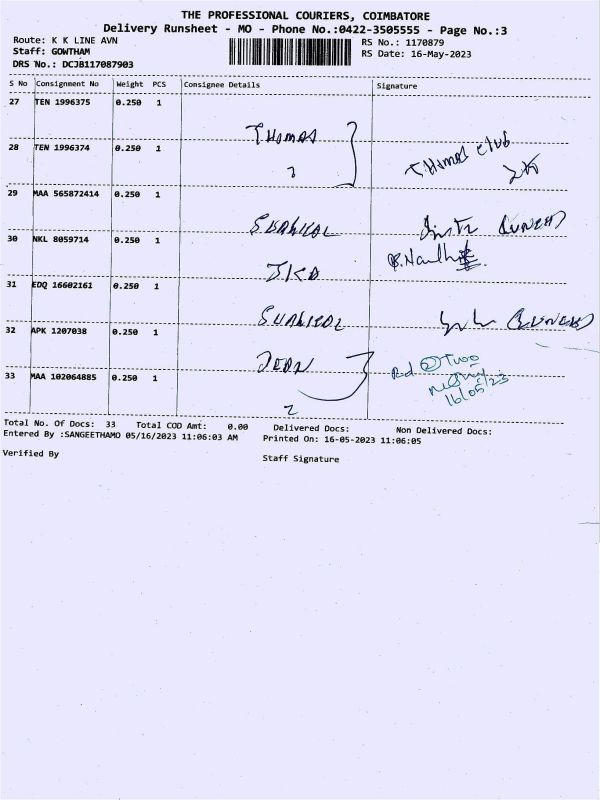 THE PROFESSIONAL COURIERS, COIMBATORE
Delivery Runsheet - MO - Phone No.:0422-3505555 - Page No.:3
Route: K K LINE AVN
RS No.: 1170879
Staff: GOWTHAM
RS Date: 16-May-2023
DRS No.: DCJB117087903
S No Consignment No Weight PCS Consignee Details Signature
27 TEN 1996375 0.250 1
THOMAS
THOMAS club
28 TEN 1996374 0.250 1
2
29 MAA 565872414 0.250 1
30 NKL 8059714 0.250 1
31 EDQ 16602161 0.250 1
32 APK 1207038 0.250 1
JEAN
Rd 2 Two
16/05/23
33 MAA 102064885 0.250 1
2
Total No. Of Docs: 33 Total COD Amt: 0.00 Delivered Docs: Non Delivered Docs:
Entered By :SANGEETHAMO 05/16/2023 11:06:03 AM Printed On: 16-05-2023 11:06:05
Verified By Staff Signature